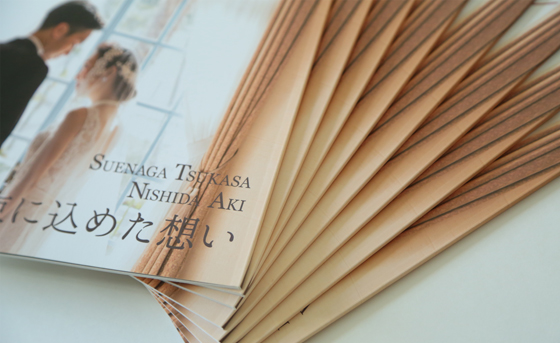 SUENAGA TSUKASA
NISHIDA AKI
に込めた想い